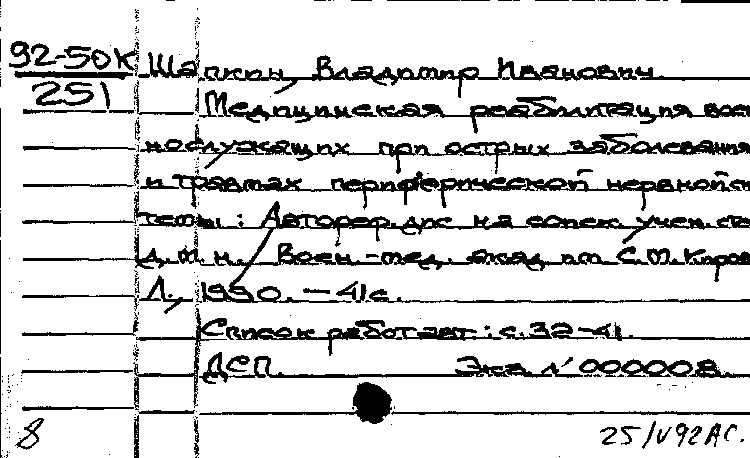 92-50К
251
Шапкин, Владимир Иванович.
Медицинская реабилитация вое
нослужащих при остры́х заболевания
и травмах периферической нервной си
темы: Автореф. дис на соиск. учен. сте
д. м. н. / Воен.-мед. акад им С.М.Киров
Л., 1990. — 41с.
Список работ авт.: с. 32-41.
ДСП. Экз № 000008.
8
25/V92 АС.